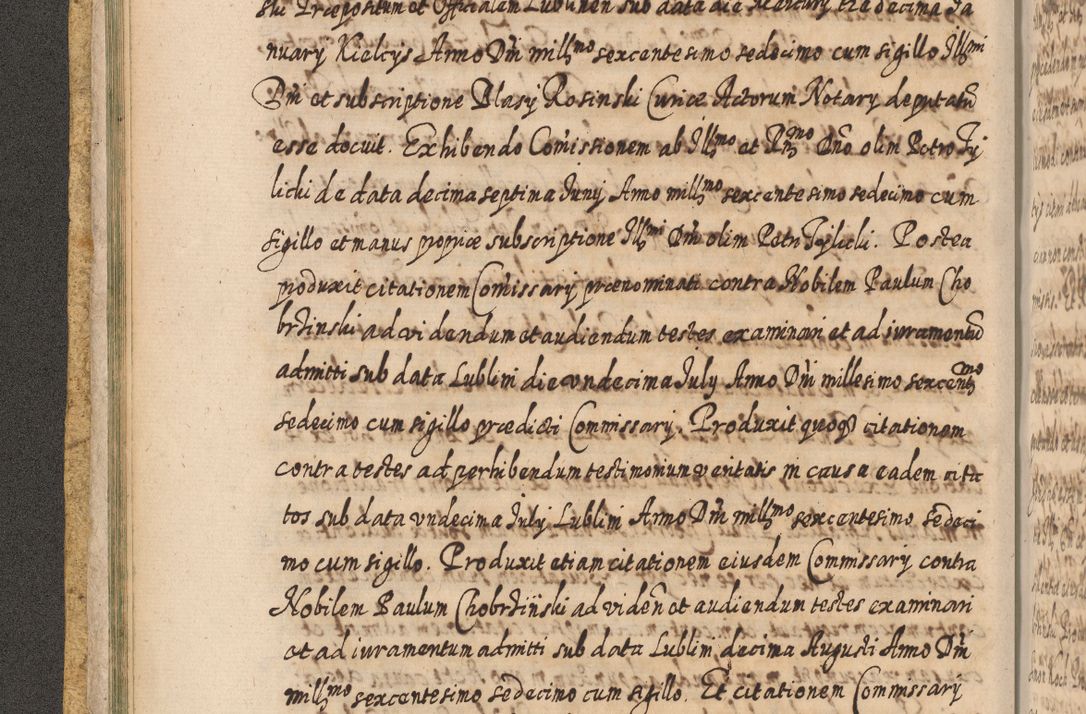 ski Præpositum et Officialem Lublinen sub data die Mercury tredecima Ja
nuary Kielcys Anno Dni millmo sexcentesimo sedecimo cum sigillo Illmi
Dni et subscriptione Blasy Rosinski Curiæ Actorum Notary deputatu
esse docuit. Exhibendo Comissionem ab Illmo et Rmo Dno olim Petro Ty
licki de data decima septima Juny Anno millmo sexcentesimo sedecimo cum
sigillo et manus propriæ subscriptione Illmi Dni olim Petri Tylicki. Postea
produxit citationem Comissary prænominati contra Nobilem Paulum Cho
brzinski ad videndum et audiendum testes examinari et ad iuramentu
admitti sub data Lublini die undecima July Anno Dni millesimo sexcentmo
sedecimo cum sigillo prædicti Commissary. Produxit quoq3 citationem
contra testes ad perhibendum testimonium veritatis in causa eadem cita
tos sub data undecima July Lublini Anno Dni millmo sexcentesimo sedeci
mo cum sigillo. Produxit etiam citationem eiusdem Commissary contra
Nobilem Paulum Chobrziński ad viden et audiendum testes examinari
et ad iuramentum admitti sub data Lublini decima Augusti Anno Dni
millmo sexcentesimo sedecimo cum sigillo. Et citationem Commissary